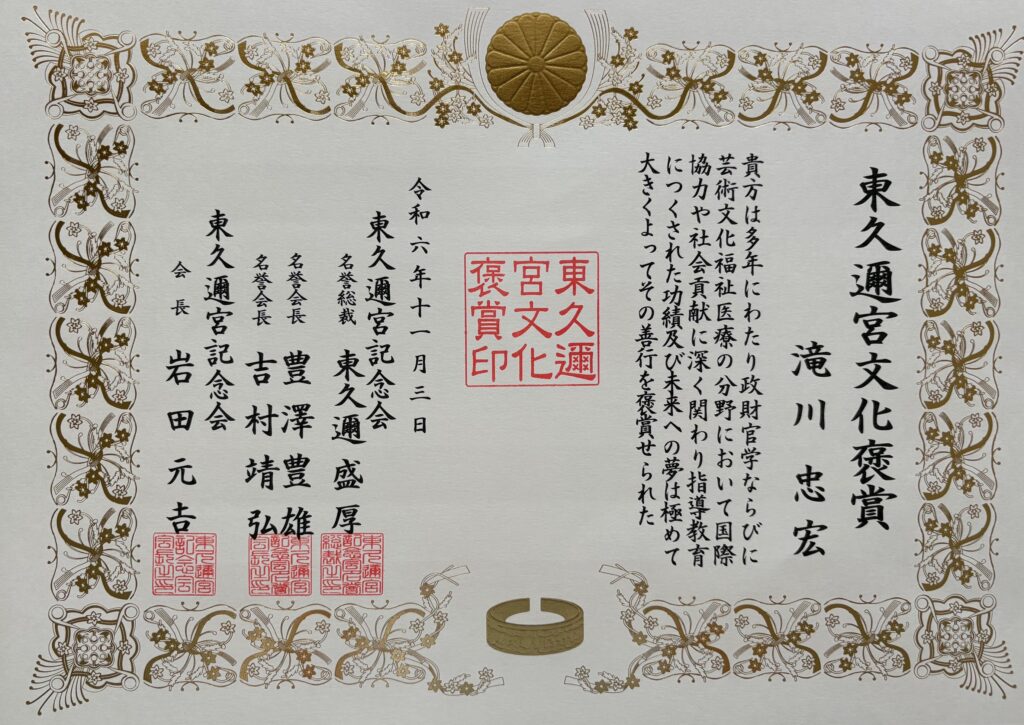 東久邇宮文化褒賞
滝川忠宏
貴方は多年にわたり政財官学ならびに
芸術文化福祉医療の分野において国際
協力や社会貢献に深く関わり指導教育
につくされた功績及び未来への夢は極めて
大きくよってその善行を褒賞せられた
東久邇
宮文化
褒賞印
令和六年十一月三日
東久邇宮記念会
名誉総裁 東久邇盛厚
名誉会長 豊澤豊雄
名誉会長 吉村靖弘
東久邇宮記念会
会長 岩田元吉